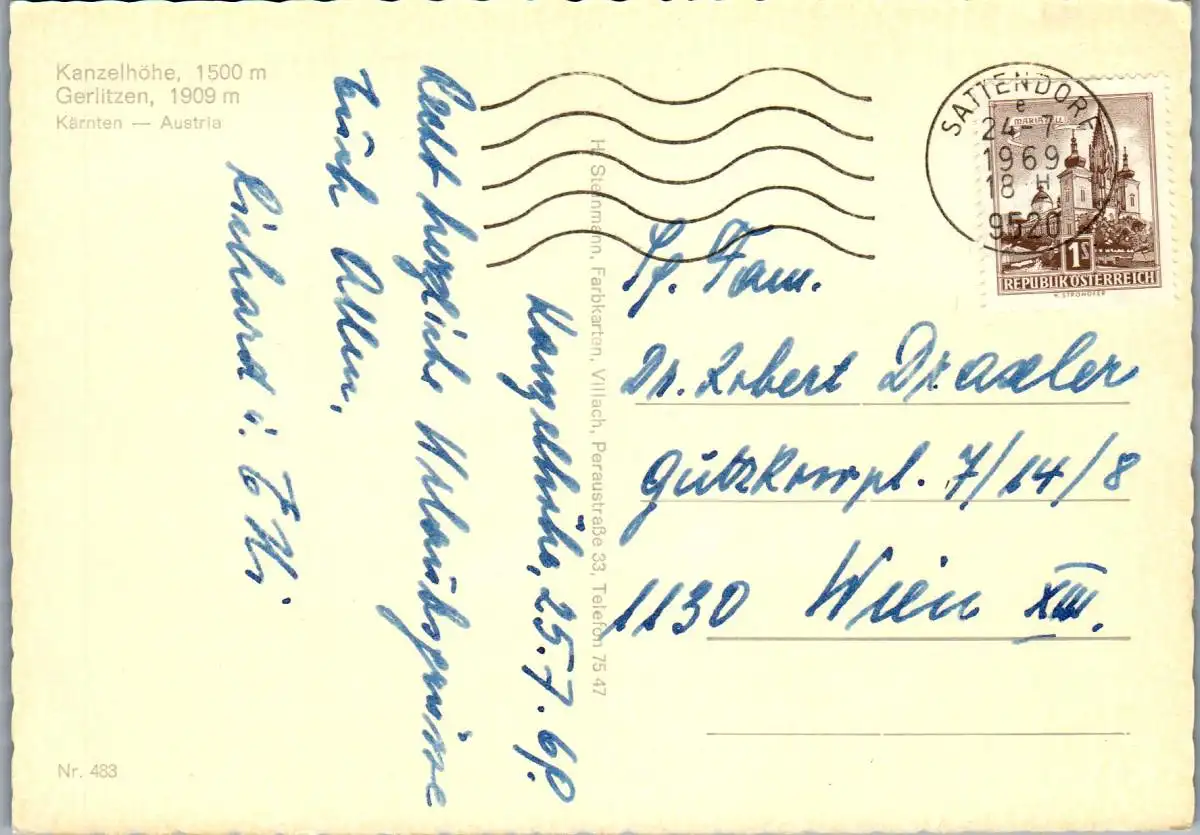 Kanzelhöhe, 1500 m
Gerlitzen, 1909 m
Kärnten — Austria
Kanzelhöhe, 25.7.69.
Recht herzliche Urlaubsgrüsse
Euch Allen,
Richard u.
H. Steinmann, Farbkarten, Villach, Peraustraße 33, Telefon 75 47
SATTENDORF
e
24-7
1969
18 H
9520
MARIAZELL
1S
REPUBLIK ÖSTERREICH
H. STROHOFER
Fam.
Dr. Robert Draxler
Gutzkowpl. 7/14/8
1130 Wien XIII.
Nr. 483